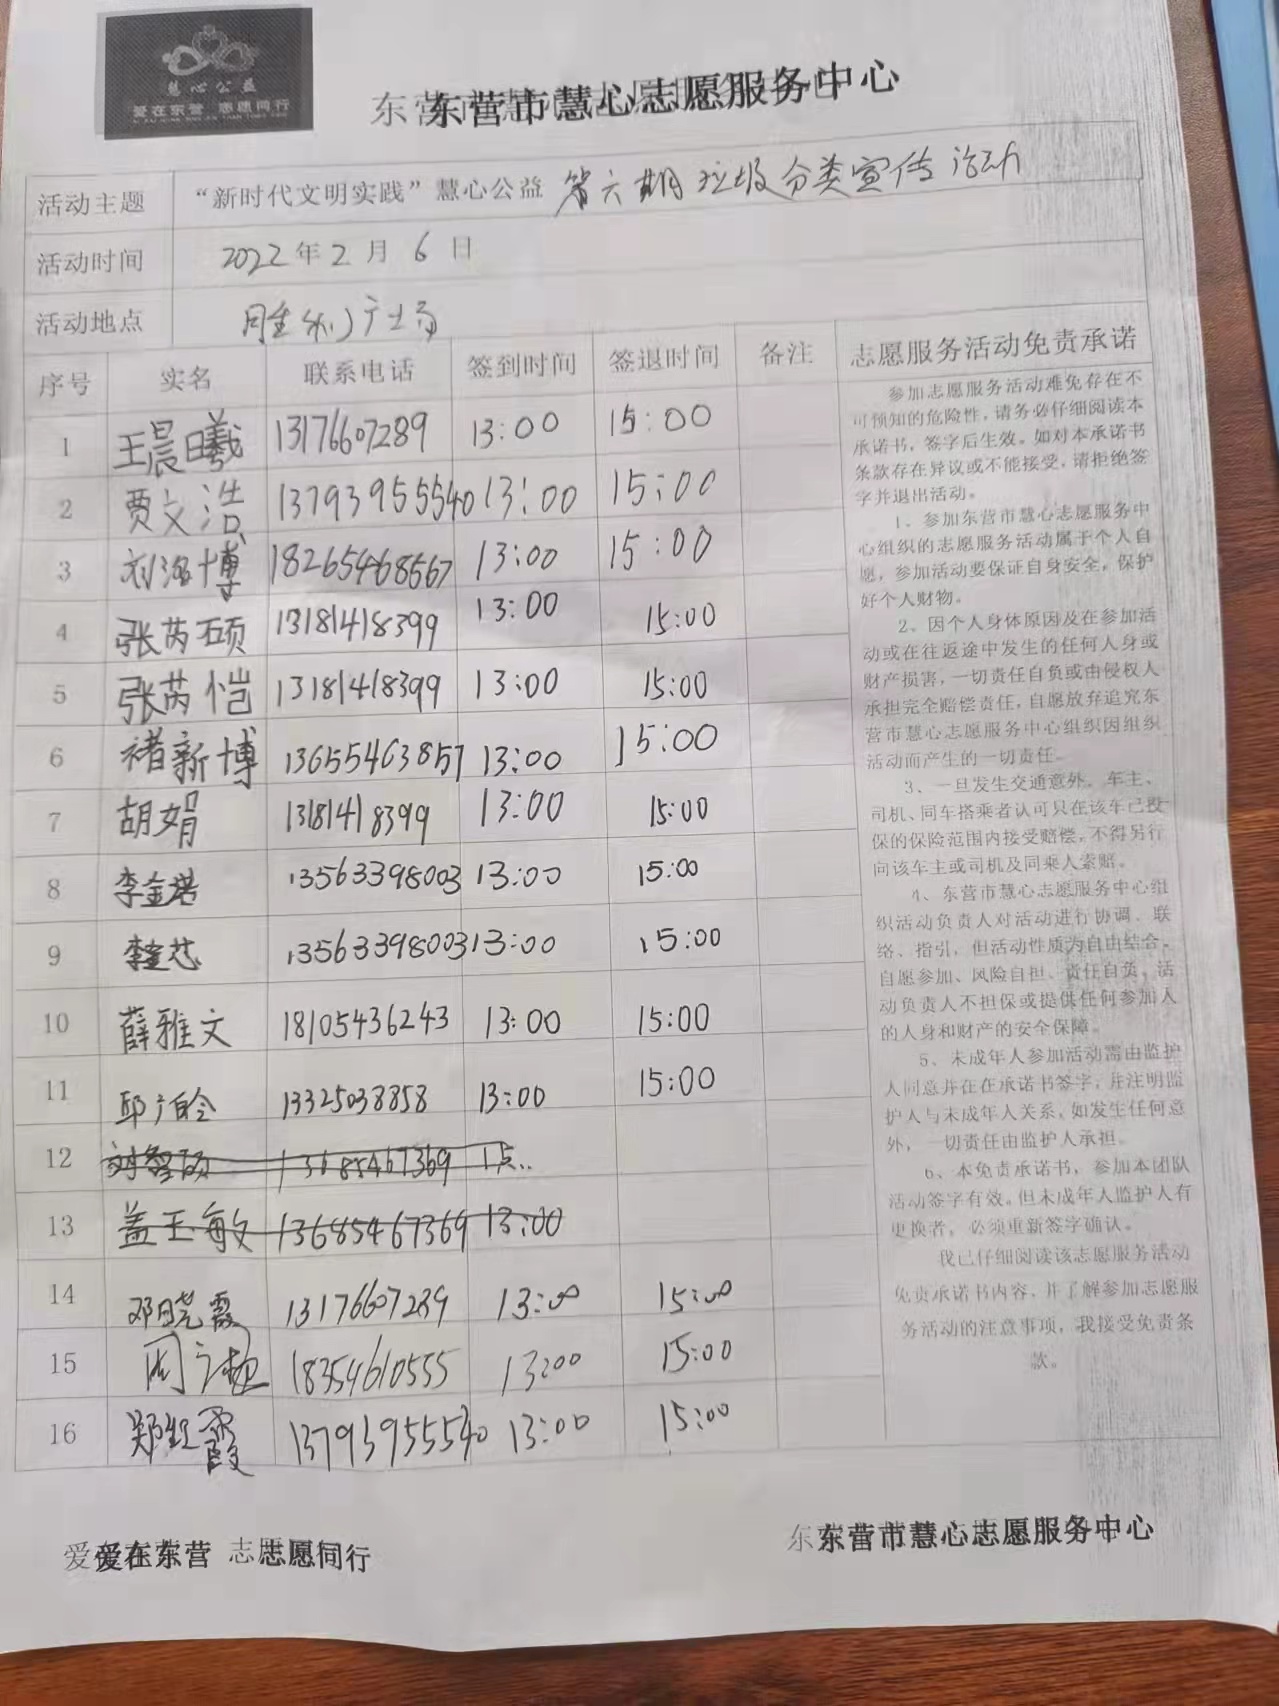 慧心公益
爱在东营 志愿同行
东营市慧心志愿服务中心
活动主题 “新时代文明实践”慧心公益 第六期垃圾分类宣传活动
活动时间 2022年2月6日
活动地点 广场
序号 实名 联系电话 签到时间 签退时间 备注 志愿服务活动免责承诺
1 王晨曦 13176607289 13:00 15:00
2 贾文浩 13793955540 13:00 15:00
3 刘洺博 18265468567 13:00 15:00
4 张芮硕 13181418399 13:00 15:00
5 张芮恺 13181418399 13:00 15:00
6 褚新博 13655463857 13:00 15:00
7 胡娟 13181418399 13:00 15:00
8 李金 13563398003 13:00 15:00
9 李 芯 13563398003 13:00 15:00
10 薛雅文 18105436243 13:00 15:00
11 邱 13325038858 13:00 15:00
12 刘 13685467369 1点..
13 盖玉敏 13685467369 13:00
14 邓晓霞 13176607289 13:00 15:00
15 周 18354610555 13:00 15:00
16 郑红霞 13793955540 13:00 15:00
参加志愿服务活动难免存在不
可预知的危险性，请务必仔细阅读本
承诺书，签字后生效。如对本承诺书
条款存在异议或不能接受，请拒绝签
字并退出活动。
1、参加东营市慧心志愿服务中
心组织的志愿服务活动属于个人自
愿，参加活动要保证自身安全，保护
好个人财物。
2、因个人身体原因及在参加活
动或在往返途中发生的任何人身或
财产损害，一切责任自负或由侵权人
承担完全赔偿责任，自愿放弃追究东
营市慧心志愿服务中心组织因组织
活动而产生的一切责任。
3、一旦发生交通意外，车主、
司机、同车搭乘者认可只在该车已投
保的保险范围内接受赔偿，不得另行
向该车主或司机及同乘人索赔。
4、东营市慧心志愿服务中心组
织活动负责人对活动进行协调、联
络、指引，但活动性质为自由结合、
自愿参加、风险自担、责任自负，活
动负责人不担保或提供任何参加人
的人身和财产的安全保障。
5、未成年人参加活动需由监护
人同意并在在承诺书签字，并注明监
护人与未成年人关系，如发生任何意
外，一切责任由监护人承担。
6、本免责承诺书，参加本团队
活动签字有效。但未成年人监护人有
更换者，必须重新签字确认。
我已仔细阅读该志愿服务活动
免责承诺书内容，并了解参加志愿服
务活动的注意事项，我接受免责条
款。
爱在东营 志愿同行
东营市慧心志愿服务中心